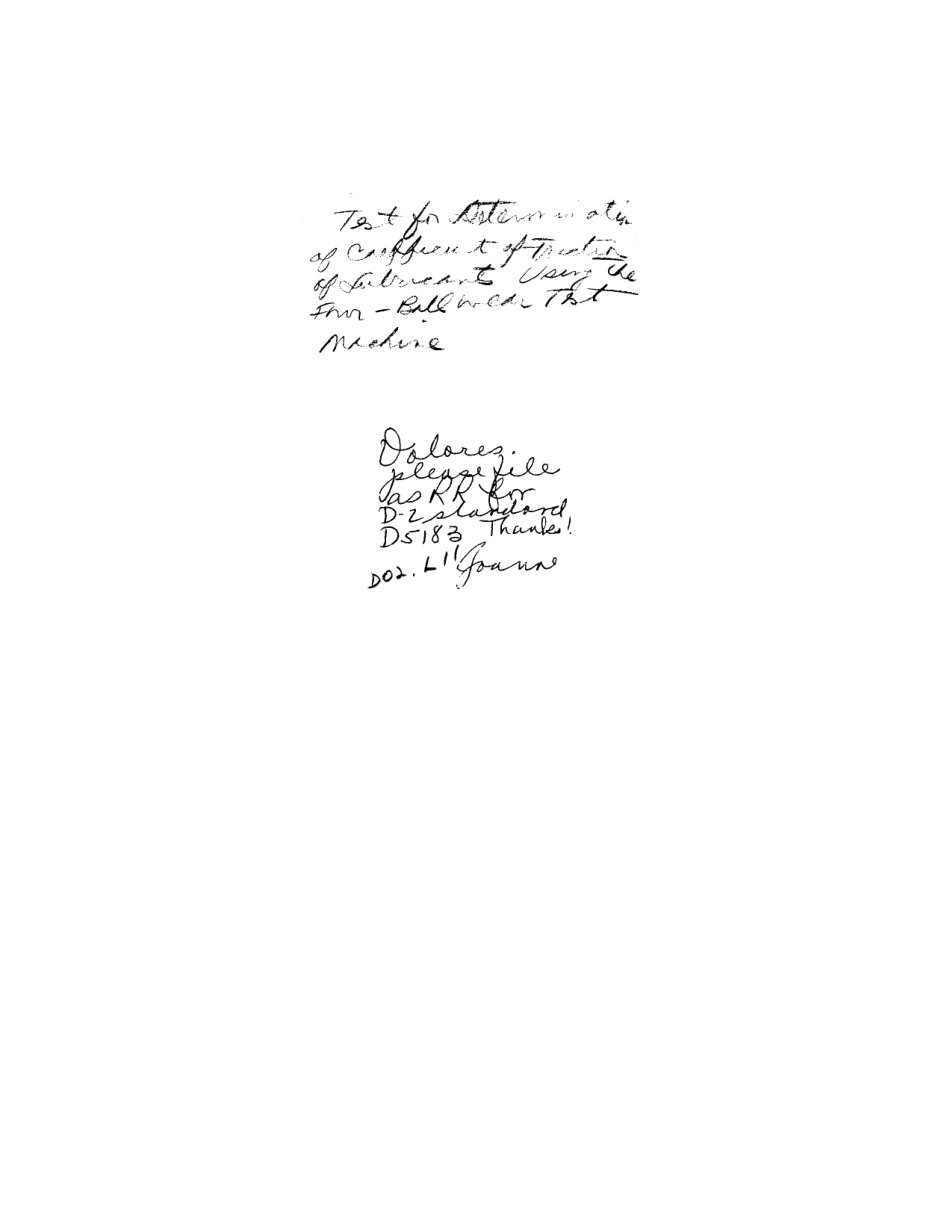 Test for Determination
of Coefficient of Friction
of Lubricant Using the
Four-Ball Wear Test
Machine
Dolores,
please file
as RR for
D-2 standard
D5183 Thanks!
D02.L11 Joanne